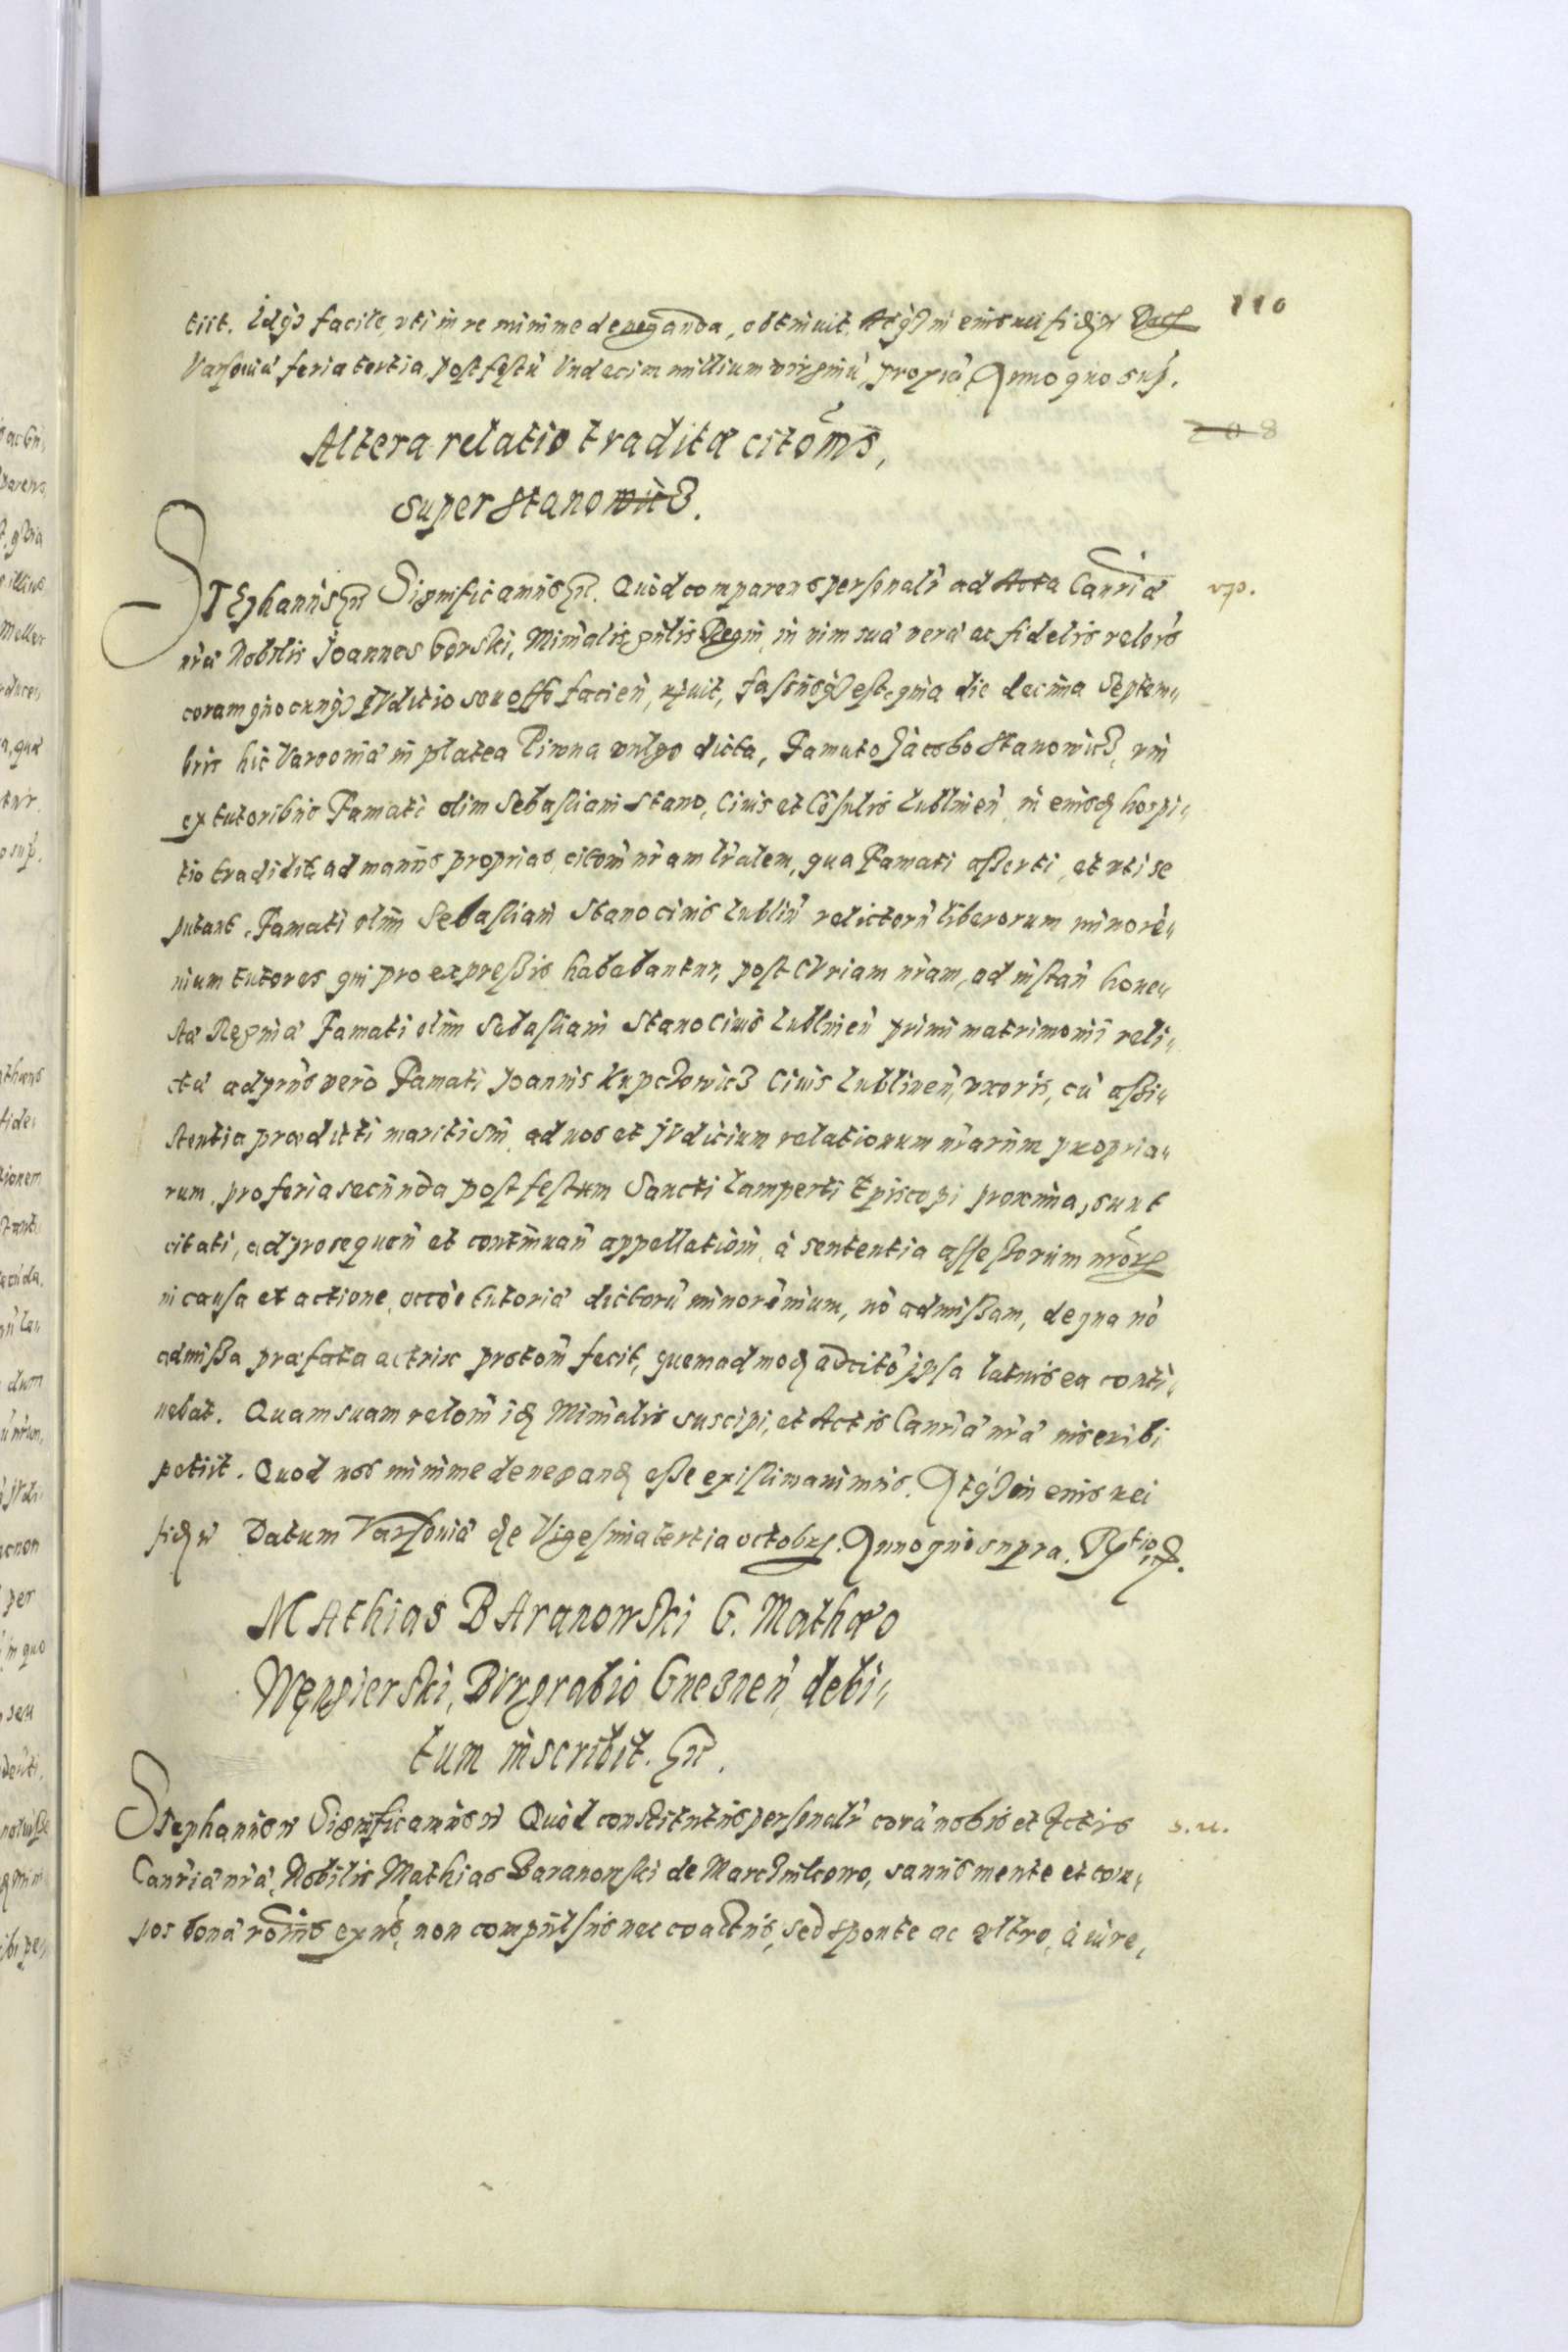 110
tiit. Idq3 facile, uti in re minime deneganda, obtinuit. Atq3 in eius rei fidem Datum
Varsouiæ feria tertia post festū Undecim millium virginū, proximā, Anno quo sup.
208
Altera relatio traditæ citōnis,
super Stanowicz.
STEphanus Significamus Quod comparens personalr̄ ad Acta Canr̄iæ
nr̄æ Nobilis Joannes Gorski, Minr̄alis gn̄lis Regni, in vim suæ veræ ac fidelis relōis
coram quocunq3 IVditio seu offō facien̄, fassusq3 est, quia die decima Septem„
bris hic Varsouiæ in platea Piwna vulgo dicta, Famato Jacobo Stanowicz, uni
ex tutoribus Famati olim Sebastiani Stano, Ciuis et Cōsulis Lublinen̄, in eiusd hospi„
tio tradidit, ad manus proprias, citōm nr̄am lr̄alem, qua Famati asserti, et uti se
putant, Famati olim Sebastiani Stano ciuis Lublin̄ relictorū liberorum minorē„
nium tutores, qui pro expressis habebantur, post CVriam nr̄am, ad instan̄ hone„
stæ Reginæ Famati olim Sebastiani Stano Ciuis Lublinen̄ primi matrimonii reli„
ctæ ad prn̄s vero Famati Joannis Kupczowicz Ciuis Lublinen̄, uxoris, cū assi„
stentia prædicti mariti sui, ad nos et jVdicium relationum nr̄arum propria„
rum, pro feria secunda post festum Sancti Lamperti Episcopi proxima, sunt
citati, ad prosequen̄ et continuan̄ appellatiōm, à sententia assessorum nr̄orum
in causa et actione, occōe tutoriæ dictorū minorēnium, nō admissam, de qua nō
admissa præfata actrix protōm fecit, quemadmod ad citō ipsa latius ea conti„
nebat. Quam suam relōm id Minr̄alis suscipi, et Actis Canr̄iæ nr̄æ inscribi
petiit. Quod nos minime denegand esse existimauimus. Atq3 in eius rei
fid Datum Varsouiæ de Vigesima tertia octobrs. Anno quo supra.
MAthias BAranowski G. Mathæo
Węngierski, BVrgrabio Gnesnen̄, debi„
tum inscribit.
Stephanus Significamus Quod constitutus personalr̄ corā nobis et Actis
s. u.
Canr̄iæ nr̄æ, Nobilis Mathias Baranowski de Marchulcowo, sanus mente et com„
pos bonæ non compulsus nec coactus, sed sponte ac ultro, à iure,